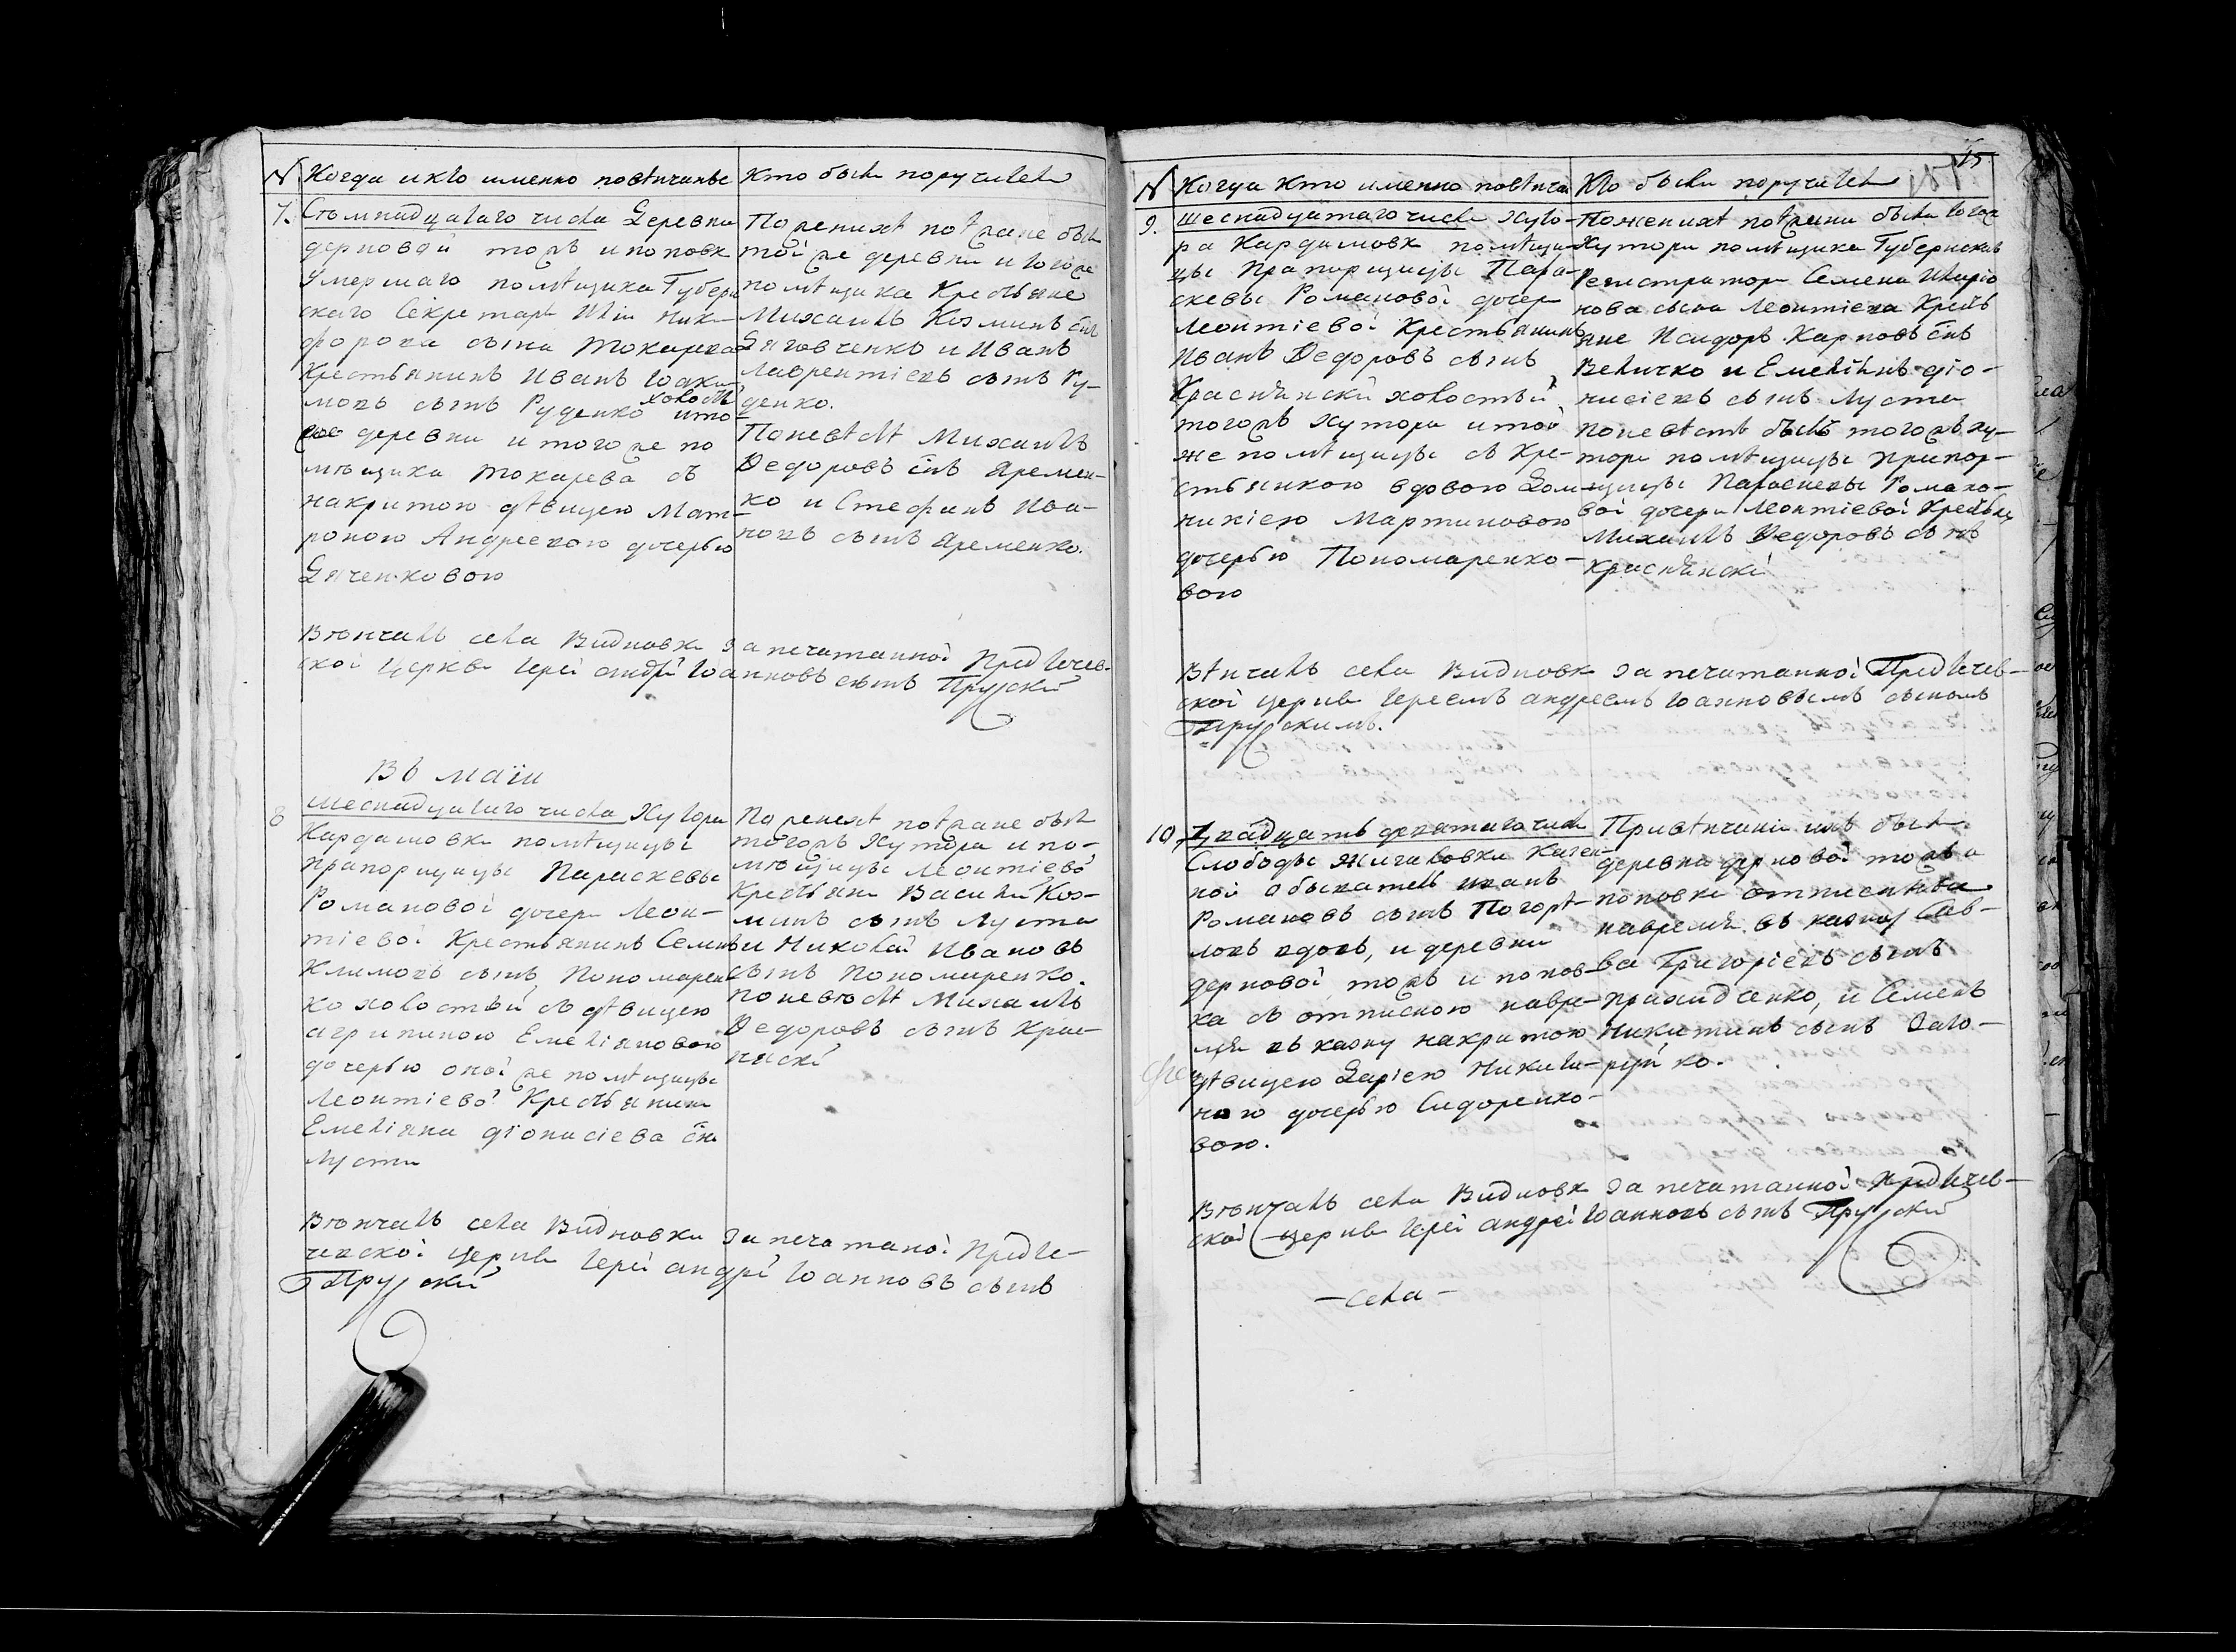 15
№ Когда и кто именно повѣнчаны
Кто были поручители
7. Семнадцатаго числа Деревни
дерновой тожъ и поповк
умершаго помѣщика Губерн
скаго Секретаря Ильи Ники
форова сына Токарева
Крестьянинъ Иванъ Іоаки
мовъ сынъ Руденко холостъ и то
деревни и того же по
мѣщика Токарева съ
накритою дѣвицею Мат-
роною Андреевою дочерью
Дяченковою
По женихѣ поѣзжане были
той же деревни и того же
помѣщика Крестьяне
Михаилъ Козминъ снъ
Дяговченко и Иванъ
Лаврентіевъ сынъ Ру-
денко.
По невѣстѣ Михаилъ
Ѳедоровъ снъ Яремен-
ко и Стефанъ Ива-
новъ сынъ Яременко.
Вѣнчалъ села Видновки Запечатанной Предтечев-
ской Церкви Іерей Андрей Іоанновъ сынъ Прускій
Въ маіи
8 Шеснадцатаго числа Хутора
Кардашовки помѣщицы
Прапорщицы Параскевы
Романовой дочери Леон-
тіевой Крестьянинъ Семенъ
Климовъ сынъ Пономарен
ко холостый съ дѣвицею
Агрипиною Емеліяновою
дочерью оной же помѣщицы
Леонтіевой Крестьянина
Емеліяна Діонисіева сна
Лусты
По женихѣ поѣзжане были
тогожъ Хутора и по-
мѣщицы Леонтіевой
Крестьяне Василій Коз-
минъ сынъ Луста
и Николай Ивановъ
сынъ Пономаренко.
По невѣстѣ Михаилъ
Ѳедоровъ сынъ Крас-
нянскі
Вѣнчалъ села Видновки Запечатаной Предте-
чевской церкви Іерей Андрей Іоанновъ сынъ
Прускій
№ Когда кто именно повѣнча
Кто были поручители
9. Шеснадцатаго числа Хуто-
ра Кардашовки помѣщи-
цы Прапорщицы Пара-
скевы Романовой дочери
Леонтіевой Крестьянинъ
Иванъ Ѳедоровъ сынъ
Краснянскій холостый
тогожъ Хутора и той
же помѣщицы съ Кре-
стьянкою вдовою Дом-
никіею Мартиновою
дочерью Пономаренко-
вою
По женихѣ поѣзжани были того
Хутора помѣщика Губернскаго
Регистратора Семена Иларіо
нова сына Леонтіева Кресть
яне Исидоръ Карповъ снъ
Величко и Емеліянъ Діо-
нисіевъ сынъ Луста
По невѣстѣ былъ тогожъ ху-
тора помѣщицы Прапор-
щицы Параскевы Романо-
вой дочери Леонтіевой Крестьян
Михаилъ Ѳедоровъ сынъ
Краснянскі
Вѣнчалъ села Видновки Запечатанной Предтечев-
ской церкви Іереемъ Андреемъ Іоанновымъ сыномъ
Прускимъ.
10 Двадцать девятаго числа
Слободы Жигаловки Казен-
ной обыватель Иванъ
Романовъ сынъ Погорѣ-
ловъ вдовъ, и деревни
дерновой тожъ и попов-
ка съ отписною навре-
мя въ казну накритою
дѣвицею Даріею Никити-
ною дочерью Сидоренко-
вою.
При вѣнчаніи ихъ были
деревни дерновой тожъ и
поповки отписныя
навремя въ казну Сав-
ва Григоріевъ сынъ
Приходченко, и Семенъ
Никитинъ сынъ
Вѣнчалъ села Видновк Запечатанной Предтечев-
ской церкви Іерей Андрей Іоанновъ сынъ Прускій
- села -